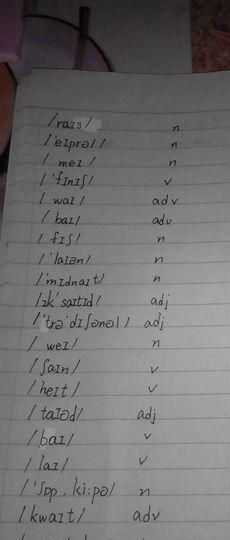 /raɪs/ n
/'eɪprəl/ n
/ meɪ / n
/ 'fɪnɪʃ/ v
/ waɪ / adv
/ baɪ/ adv
/ fɪʃ / n
/ 'laɪən/ n
/'mɪdnaɪt/ n
/ɪk'saɪtɪd/ adj
/'trə'dɪʃənəl/ adj
/ weɪ/ n
/ʃaɪn/ v
/heɪt/ v
/taɪəd/ adj
/baɪ/ v
/laɪ/ v
/'ʃɒp,ki:pə/ n
/kwaɪt/ adv